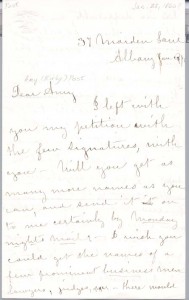 37 Maiden Lane
Albany Jan
Dear Amy
I left with
you my petition with
the few signatures, with
you – Will you get as
many more names as you
can, and send it on
to me certainly by Monday
night's mail – I wish you
could get the names of a
few prominent business men
lawyers, judges, – there would